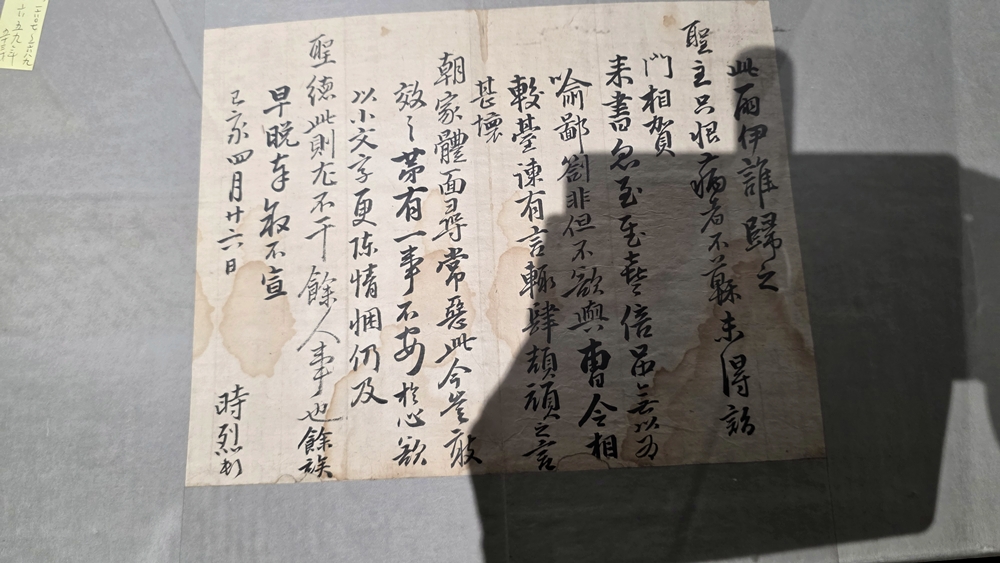 此雨伊誰歸之
聖主只恨病者不蘇未得詣
門相賀
来書忽至至喜倍品無以為
喩鄙劄非但不欲與曺令相
較臺諫有言輒肆頡頏之言
甚壞
朝家體面尋常惡此今豈敢
效之第有一事不安於心欲
以小文字更陳情悃仍及
聖德此則尤不干餘人事也餘俟
早晩奉敍不宣
己亥四月廿六日
時烈